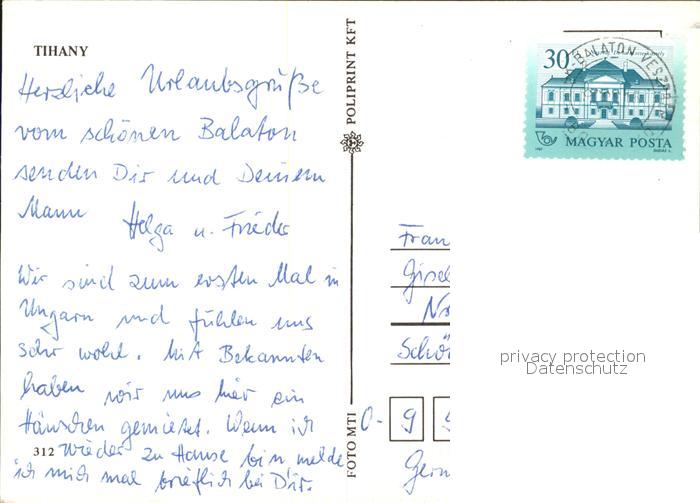 TIHANY
Herzliche Urlaubsgrüße
vom schönen Balaton
senden Dir und Deinem
Mann Helga u. Frieder
Wir sind zum ersten Mal in
Ungarn und fühlen uns
sehr wohl. Mit Bekannten
haben wir uns hier ein
Häuschen gemietet. Wenn ich
312 wieder zu Hause bin melde
ich mich mal brieflich bei Dir.
FOTO MTI
POLIPRINT KFT
30
BALATON
MAGYAR POSTA
Frau
Gisel
Schö
O- 9
Germ
privacy protection
Datenschutz